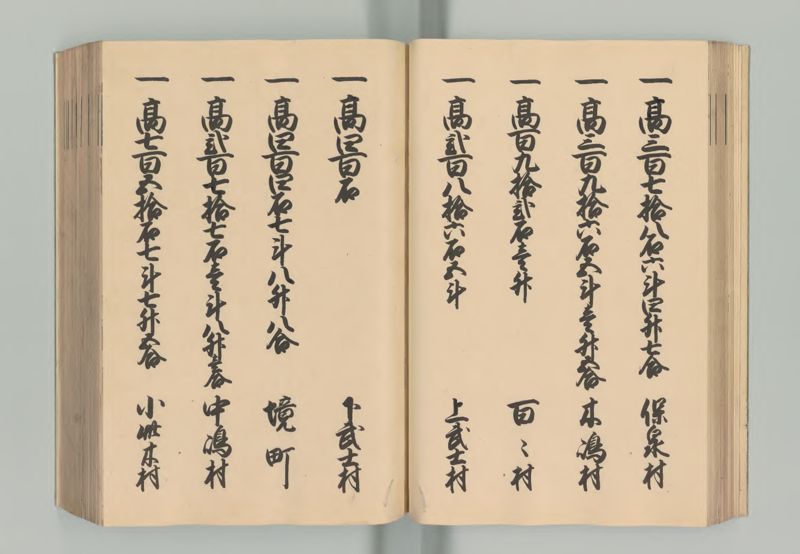 一 高三百七拾八石六斗四升七合 保泉村
一 高三百九拾六石五斗壱升五合 木嶋村
一 高百九拾弐石壱升 百々村
一 高弐百八拾六石五斗 上武士村
一 高四百石 下武士村
一 高四百四石七斗八升八合 境町
一 高弐百七拾七石壱斗八升壱合 中嶋村
一 高七百五拾石七斗七升五合 小此木村